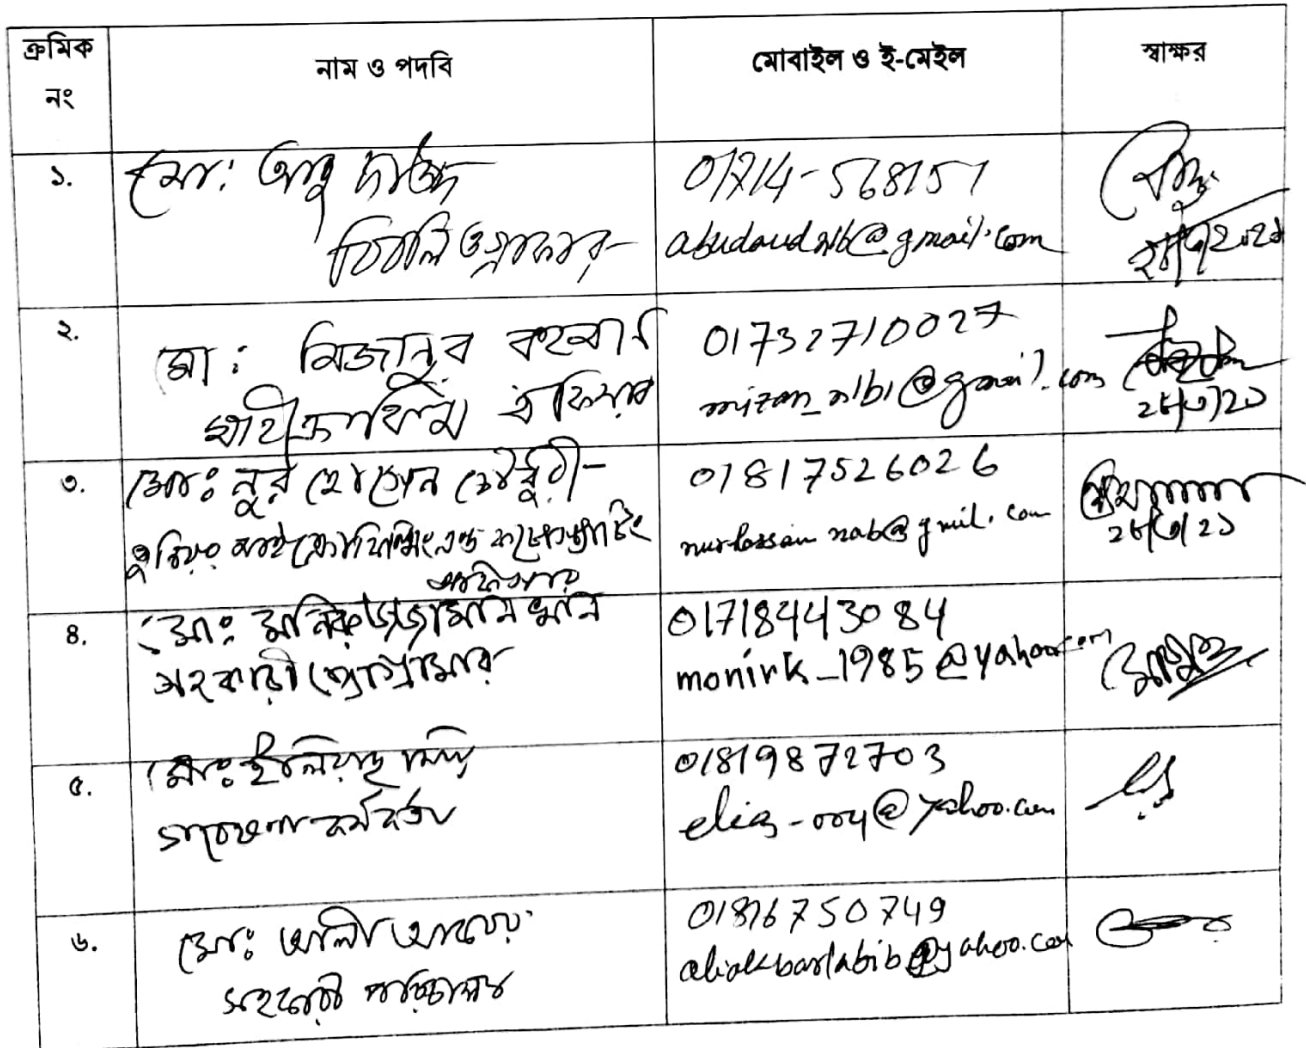 ক্রমিক
নং
নাম ও পদবি
মোবাইল ও ই-মেইল
স্বাক্ষর
১.
মো: আবু দাউদ
বিবলিওগ্রাফার
01714-568157
abudaudnlb@gmail.com
২.
মো: মিজানুর রহমান
মাইক্রোফিল্ম অফিসার
01732710027
mizan_nlb1@gmail.com
২৮/৩/২১
৩.
মো: নুর হোসেন চৌধুরী
জুনিয়র মাইক্রোফিল্মিং এন্ড
অফিসার
01817526026
nurhossain nab@gmil.com
২৮/৩/২১
৪.
মো: মনিরুজ্জামান খান
সহকারী প্রোগ্রামার
01718443084
monirk_1985@yahoo.com
৫.
মো: ইলিয়াছ মিয়া
গবেষণা কর্মকর্তা
01819872703
elias-004@yahoo.com
৬.
মো: আলী আকবর
সহকারী পরিচালক
01816750749
aliakbarlabib@yahoo.com